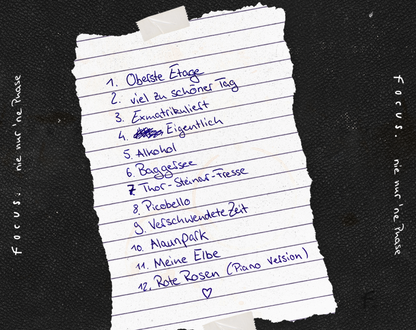 1. Oberste Etage
2. viel zu schöner Tag
3. Exmatrikuliert
4. Eigentlich
5. Alkohol
6. Baggersee
7 Thor-Steinar-Fresse
8. Picobello
9. Verschwendete Zeit
10. Alaunpark
11. Meine Elbe
12. Rote Rosen (Piano Version)
♡
focus. nie nur 'ne Phase
focus. nie nur 'ne Phase